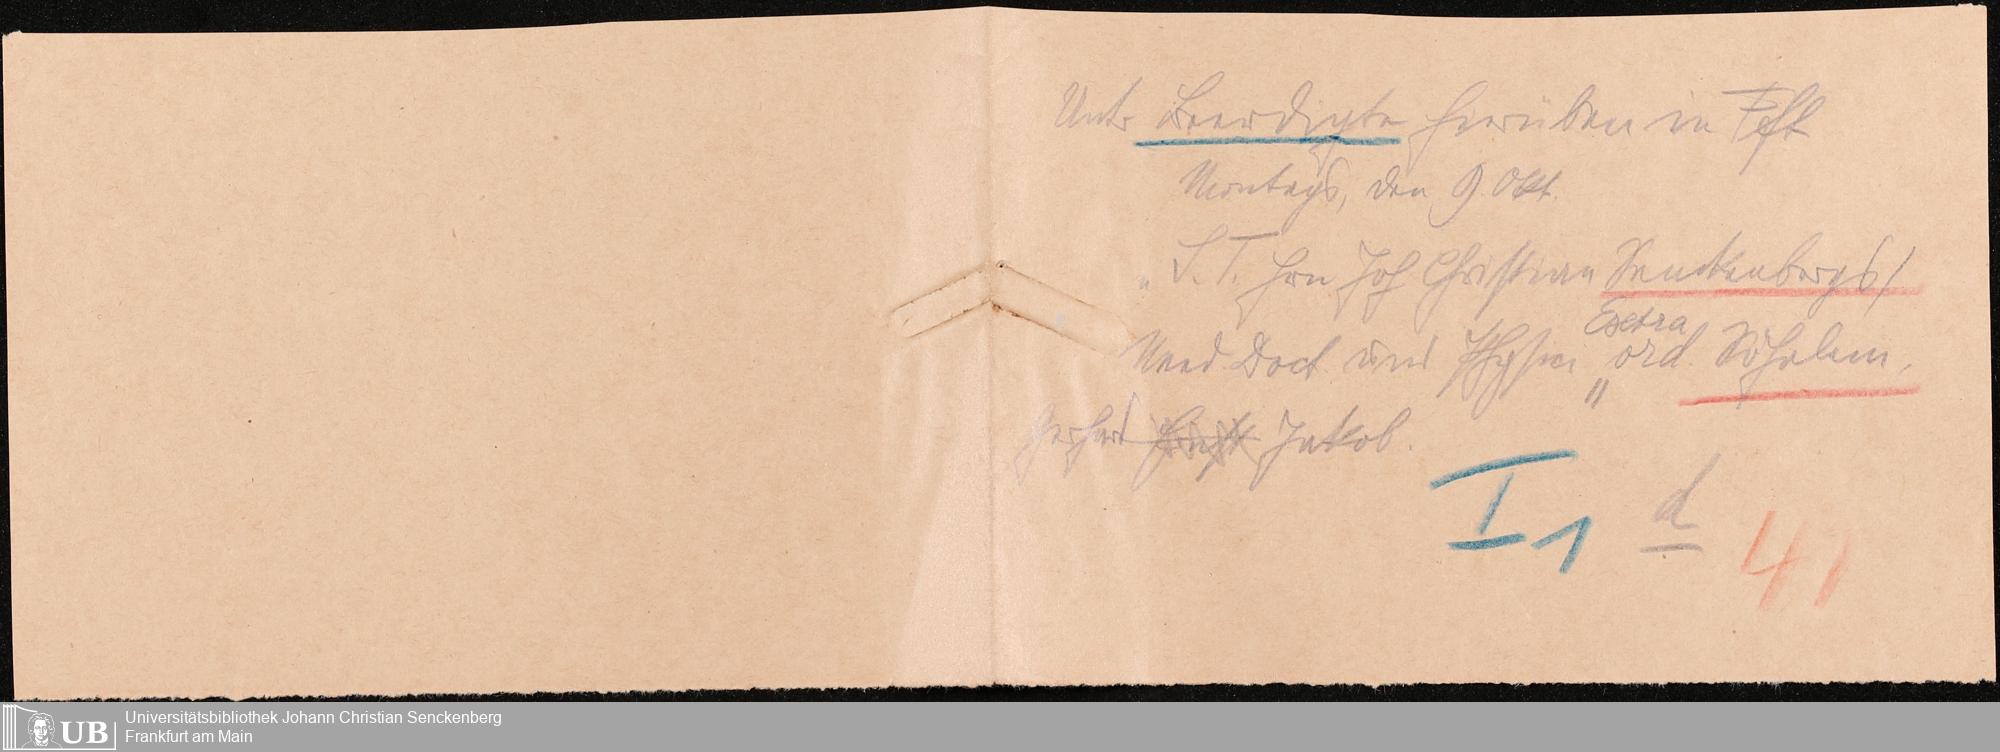 Untr Beerdigte herüben in Fft
Montags, den 9. Okt.
„S. T. Hrn Joh Christian Senckenbergs/
Med. Doct. und Physici
Extra
ord. Söhnlein,
Gerhard Jakob.
I 1 d 41
UB
Universitätsbibliothek Johann Christian Senckenberg
Frankfurt am Main